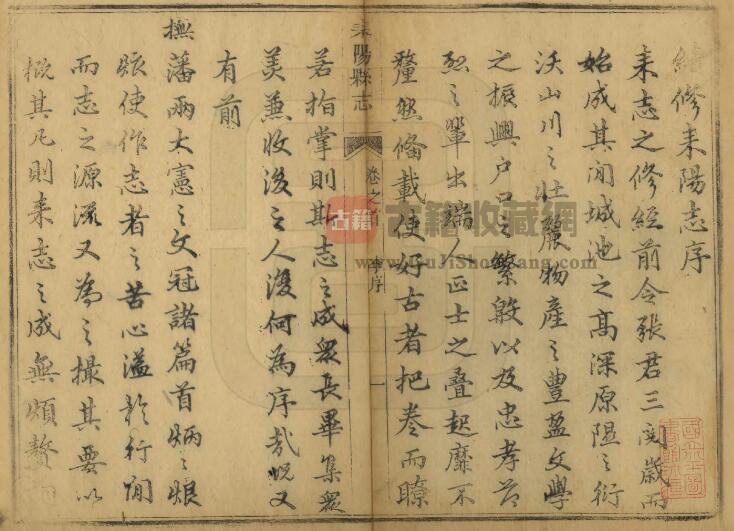 續修耒陽志序
耒志之修經前令張君三閱歲而
始成其間城池之高深原隰之衍
沃山川之壯麗物產之豐盈文學
之振興戶口之繁殷以及忠孝節
烈之輩出端人正士之叠起靡不
釐然備載使好古者把卷而瞭
耒陽縣志
卷之 序
一
若指掌則斯志之成衆長畢集衆
美兼收後之人復何為序哉況又
有前
撫藩兩大憲之文冠諸篇首炳之烺
烺使作志者之苦心溢於行間
而志之源流又為之撮其要以
概其凡則耒志之成無煩贅
古籍
古籍收藏網
www.GuJiShouCang.com